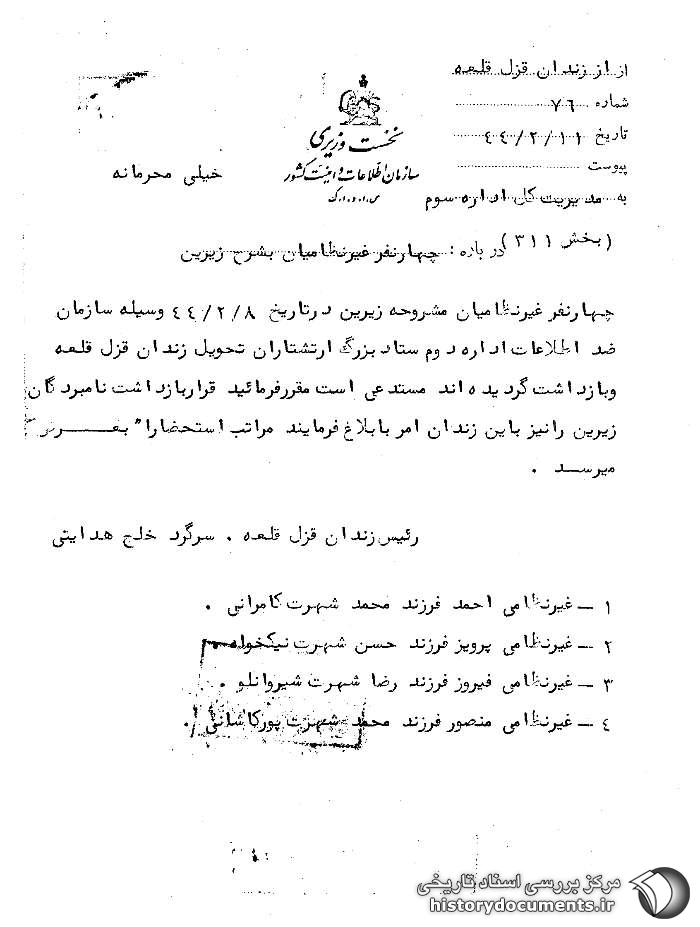 از از زندان قزل قلعه
شماره ۷۶
تاریخ ۴۴/۲/۱۱
پیوست
به مدیریت کل اداره سوم
نخست وزیری
سازمان اطلاعات و امنیت کشور
س.ا.و.ا.ک
خیلی محرمانه
(بخش ۳۱۱)
درباره : چهارنفر غیرنظامیان بشرح زیرین
چهارنفر غیرنظامیان مشروحه زیرین درتاریخ ۴۴/۲/۸ وسیله سازمان
ضد اطلاعات اداره دوم ستاد بزرگ ارتشتاران تحویل زندان قزل قلعه
وبازداشت گردیده اند مستدعی است مقررفرمائید قراربازداشت نامبردگان
زیرین رانیز باین زندان امر بابلاغ فرمایند مراتب استحضارا" بعرض
میرسد .
رئیس زندان قزل قلعه . سرگرد خلج هدایتی
۱ – غیرنظامی احمد فرزند محمد شهرت کامرانی .
۲ – غیرنظامی پرویز فرزند حسن شهرت نیکخواه
۳ – غیرنظامی فیروز فرزند رضا شهرت شیروانلو .
۴ – غیرنظامی منصور فرزند محمد شهرت پورکاشانی .
مرکز بررسی اسناد تاریخی
historydocuments.ir